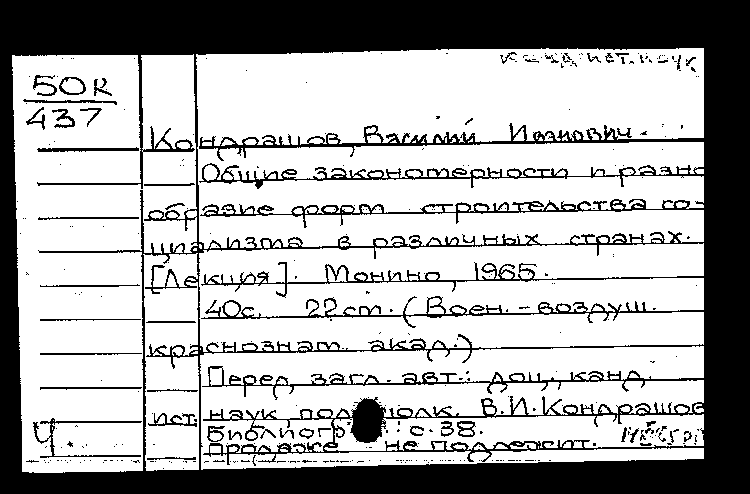 канд. ист. наук
50К
437
Кондрашов, Василий Иванович.
Общие закономерности и разно
образие форм строительства со-
циализма в различных странах.
[Лекция]. Монино, 1965.
40с. 22см. (Воен.-воздуш.
краснознам. акад.)
Перед загл. авт.: доц., канд.
ист. наук, полк. В.И. Кондрашов
Библиогр.: с. 38.
Ч. продаже не подлежит.